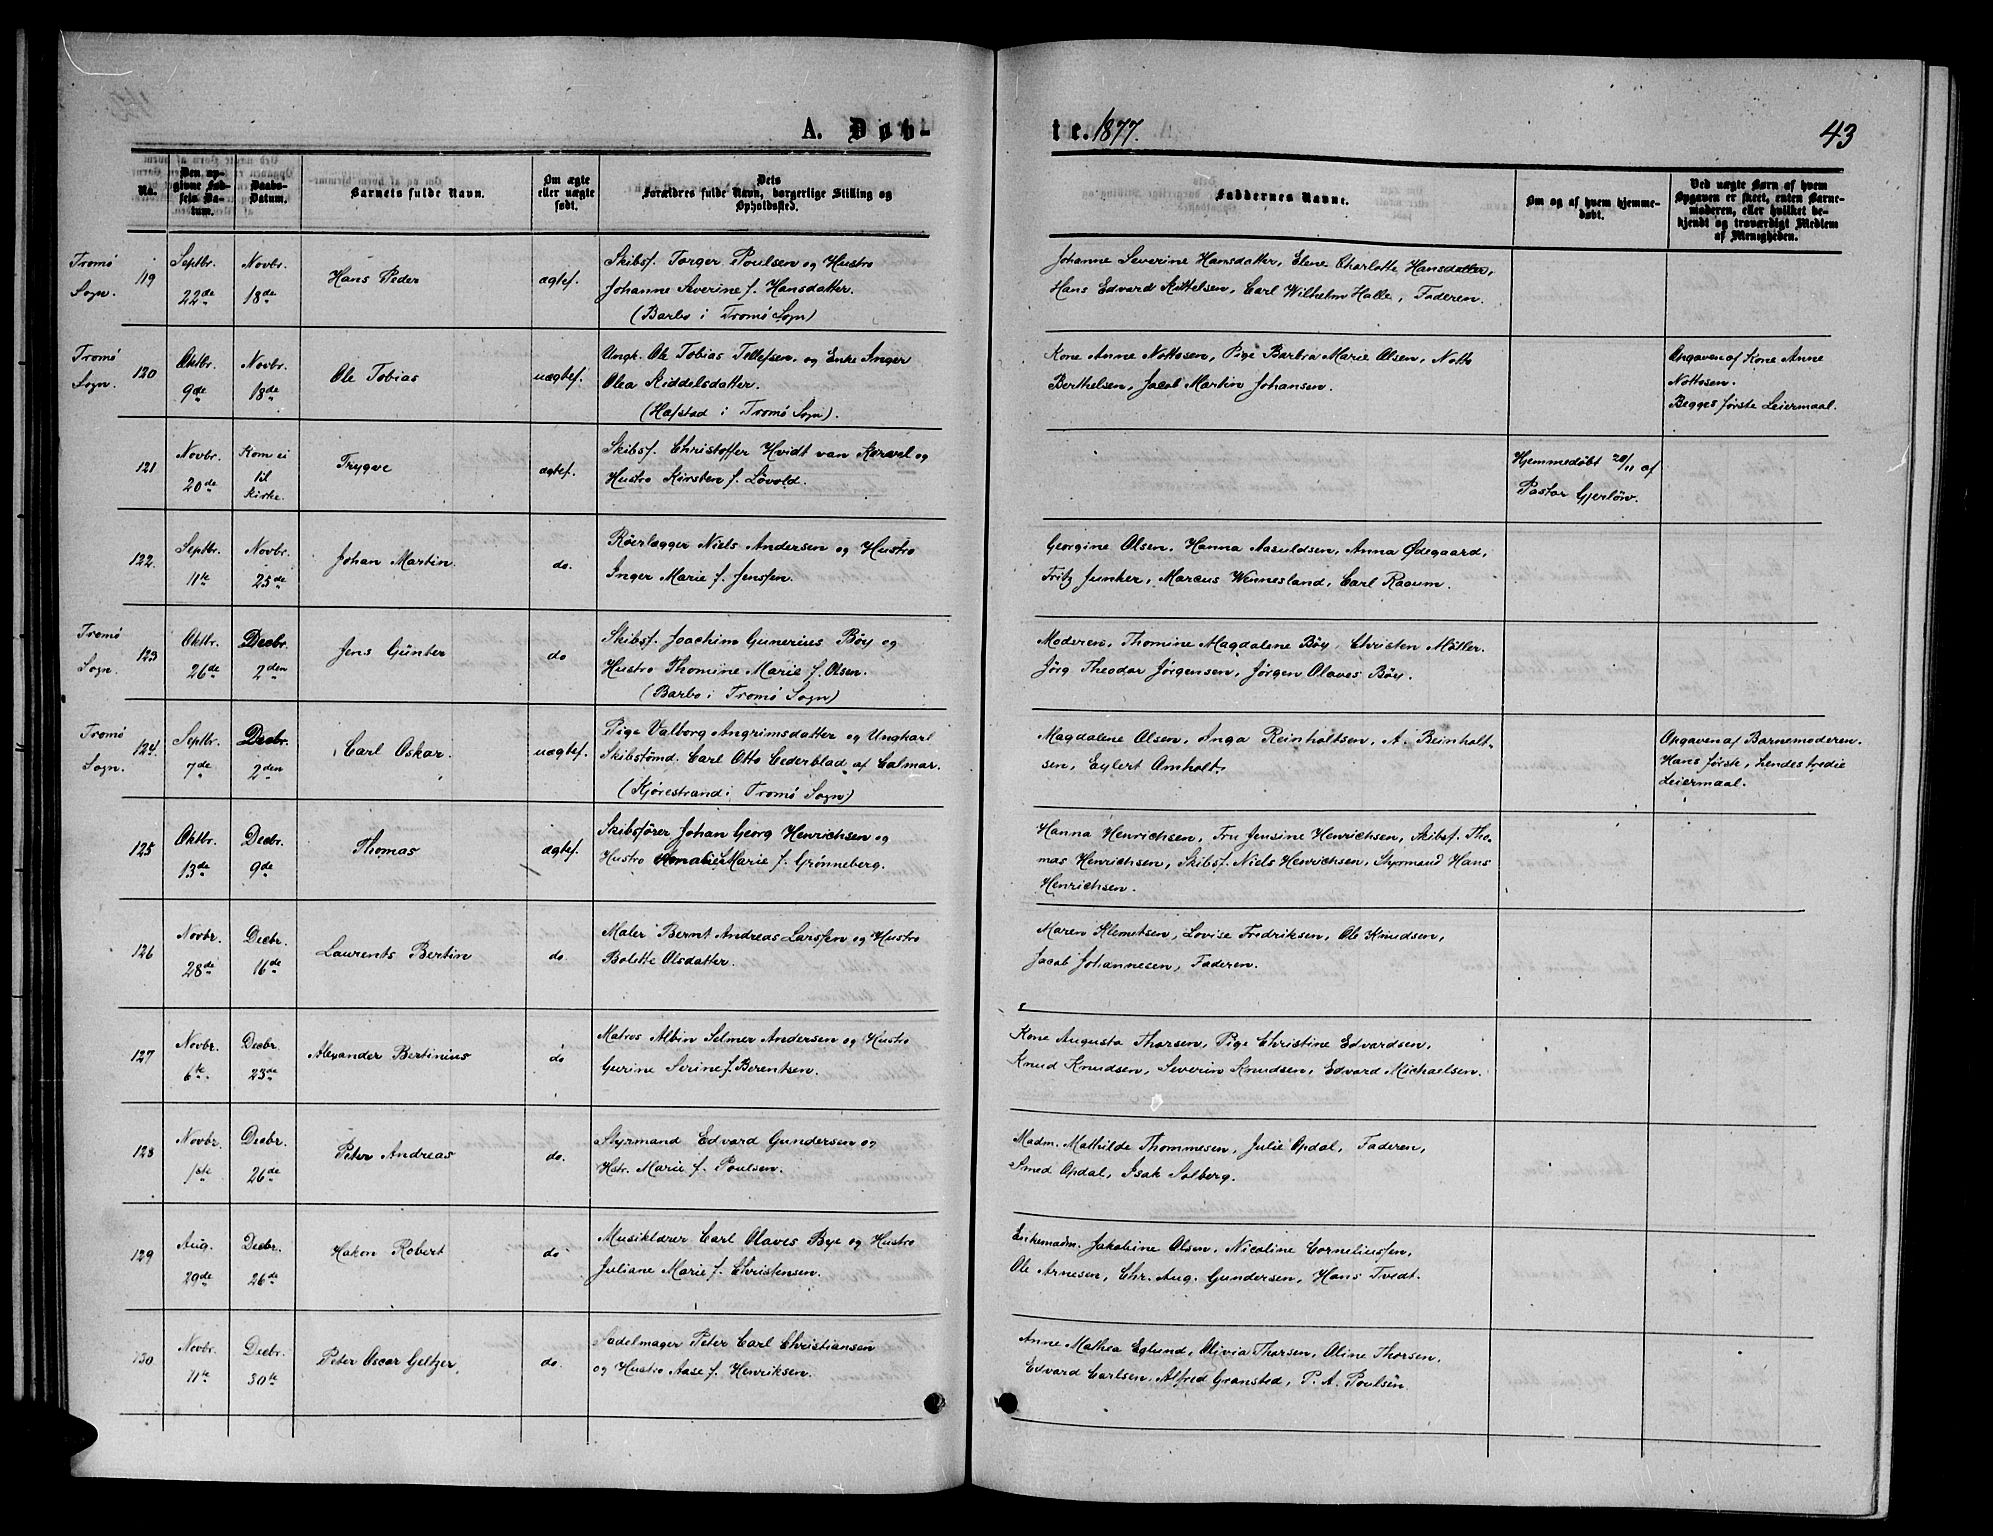 A. Døb-
te. 1877.
43
No.
Den op-
givne Fød-
sels Da-
tum.
Daabs-
Datum.
Barnets fulde Navn.
Om ægte
eller uægte
født.
Dets
Forældres fulde Navn, borgerlige Stilling og
Opholdssted.
Faddernes Navne.
Om og af hvem hjemme-
døbt.
Ved uægte Børn af hvem
Opgaven er skeet, enten Barne-
moderen, eller hvilket be-
kjendt og troværdigt Medlem
af Menigheden.
Tromø
Sogn.
119
Septbr.
22de
Novbr.
18de
Hans Peder
ægtef.
Skibsf. Torger Poulsen og Hustro
Johanne Severine f. Hansdatter.
(Barbo i Tromø Sogn)
Johanne Severine Hansdatter, Elene Charlotte Hansdatter,
Hans Edvard Kittelsen, Carl Wilhelm Halle, Faderen.
Tromø
Sogn.
120
Oktbr.
9de
Novbr.
18de
Ole Tobias
uægtef.
Ungk. Ole Tobias Tellefsen og Enke Inger
Olea Kiddelsdatter.
(Hafstad i Tromø Sogn).
Kone Anne Nottosen, Pige Barbra Marie Olsen, Notto
Berthelsen, Jacob Martin Johansen.
Opgaven af Kone Anne
Nottosen.
Begges første Leiermaal.
121
Novbr.
20de
Kom ei
til
Kirke.
Trygve
ægtef.
Skibsf. Christoffer Hvidt van Kervel og
Hustro Kirsten f. Løvold.
Hjemmedøbt 20/11 af
Pastor Gjerløw.
122.
Septbr.
11te
Novbr.
25de
Johan Martin
do.
Rørlægger Niels Andersen og Hustro
Inger Marie f. Jenssen.
Georgine Olsen, Hanna Aasuldsen, Anna Ødegaard,
Fritz Junker, Marcus Wennesland, Carl Raoum.
Tromø
Sogn.
123
Oktbr.
26de
Decbr.
2den
Jens Günter
do
Skibsf. Joachim Gunerius Bøy og
Hustro Thomine Marie f. Olsen.
(Barbo i Tromø Sogn)
Moderen, Thomine Magdalene Bøy, Christen Møller.
Jørg Theodor Jørgensen, Jørgen Olaves Bøy.
Tromø
Sogn.
124.
Septbr.
7de
Decbr.
2den
Carl Oskar.
uægtef.
Pige Valborg Angrimsdatter og Ungkarl
Skibstømd. Carl Otto Cederblad af Calmar.
(Kjørestrand i Tromø Sogn)
Magdalene Olsen, Inga Reinholtsen, A. Reinholt-
sen, Eylert Omholt.
Opgaven af Barnemoderen.
Hans første, hendes tredie
Leiermaal.
125
Oktbr.
13de
Decbr.
9de
Thomas
ægtef.
Skibsfører Johan Georg Henrichsen og
Hustro Marie f. Grønneberg.
Hanna Henrichsen, Fru Jensine Henrichsen, Skibsf. Tho-
mas Henrichsen, Skibsf. Niels Henrichsen, Styrmand Hans
Henrichsen.
126
Novbr.
28de
Decbr.
16de
Laurents Bertin
do.
Maler Bernt Andreas Larssen og Hustro
Bolette Olsdatter.
Maren Klemetsen, Lovise Fredriksen, Ole Knudsen,
Jacob Johannesen, Faderen.
127
Novbr.
6te
Decbr.
23de
Alexander Bertinius
do
Matros Albin Selmer Andersen og Hustro
Gurine Serine f. Berentsen.
Kone Augusta Thorsen, Pige Christine Edvardsen,
Knud Knudsen, Severin Knudsen, Edvard Michaelsen.
128
Novbr.
1ste
Decbr.
26de
Peter Andreas
do.
Styrmand Edvard Gundersen og
Hstr. Marie f. Poulsen.
Madm. Mathilde Thommesen, Julie Opdal, Faderen,
Smed Opdal, Isak Solberg.
129
Aug.
29de
Decbr.
26de
Hakon Robert
do
Musiklærer Carl Olaves Bye og Hustro
Juliane Marie f. Christensen.
Enkemadm. Jakobine Olsen, Nicoline Corneliussen,
Ole Arnesen, Chr. Aug. Gundersen, Hans Tvedt.
130
Novbr.
11te
Decbr.
30te
Peter Oscar Geltzer
do.
Sadelmager Peter Carl Christiansen
og Hustro Aase f. Henriksen.
Anne Mathea Eglund, Olivia Thorsen, Oline Thorsen,
Edvard Carlsen, Alfred Gransted, P. A. Poulsen